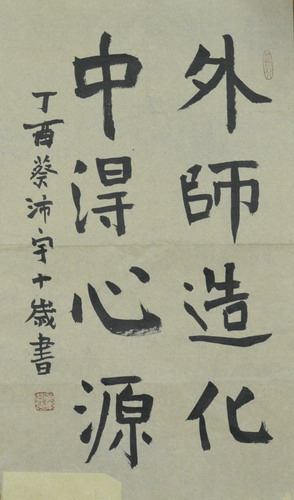 外師造化
中得心源
丁酉蔡沛宇十歲書